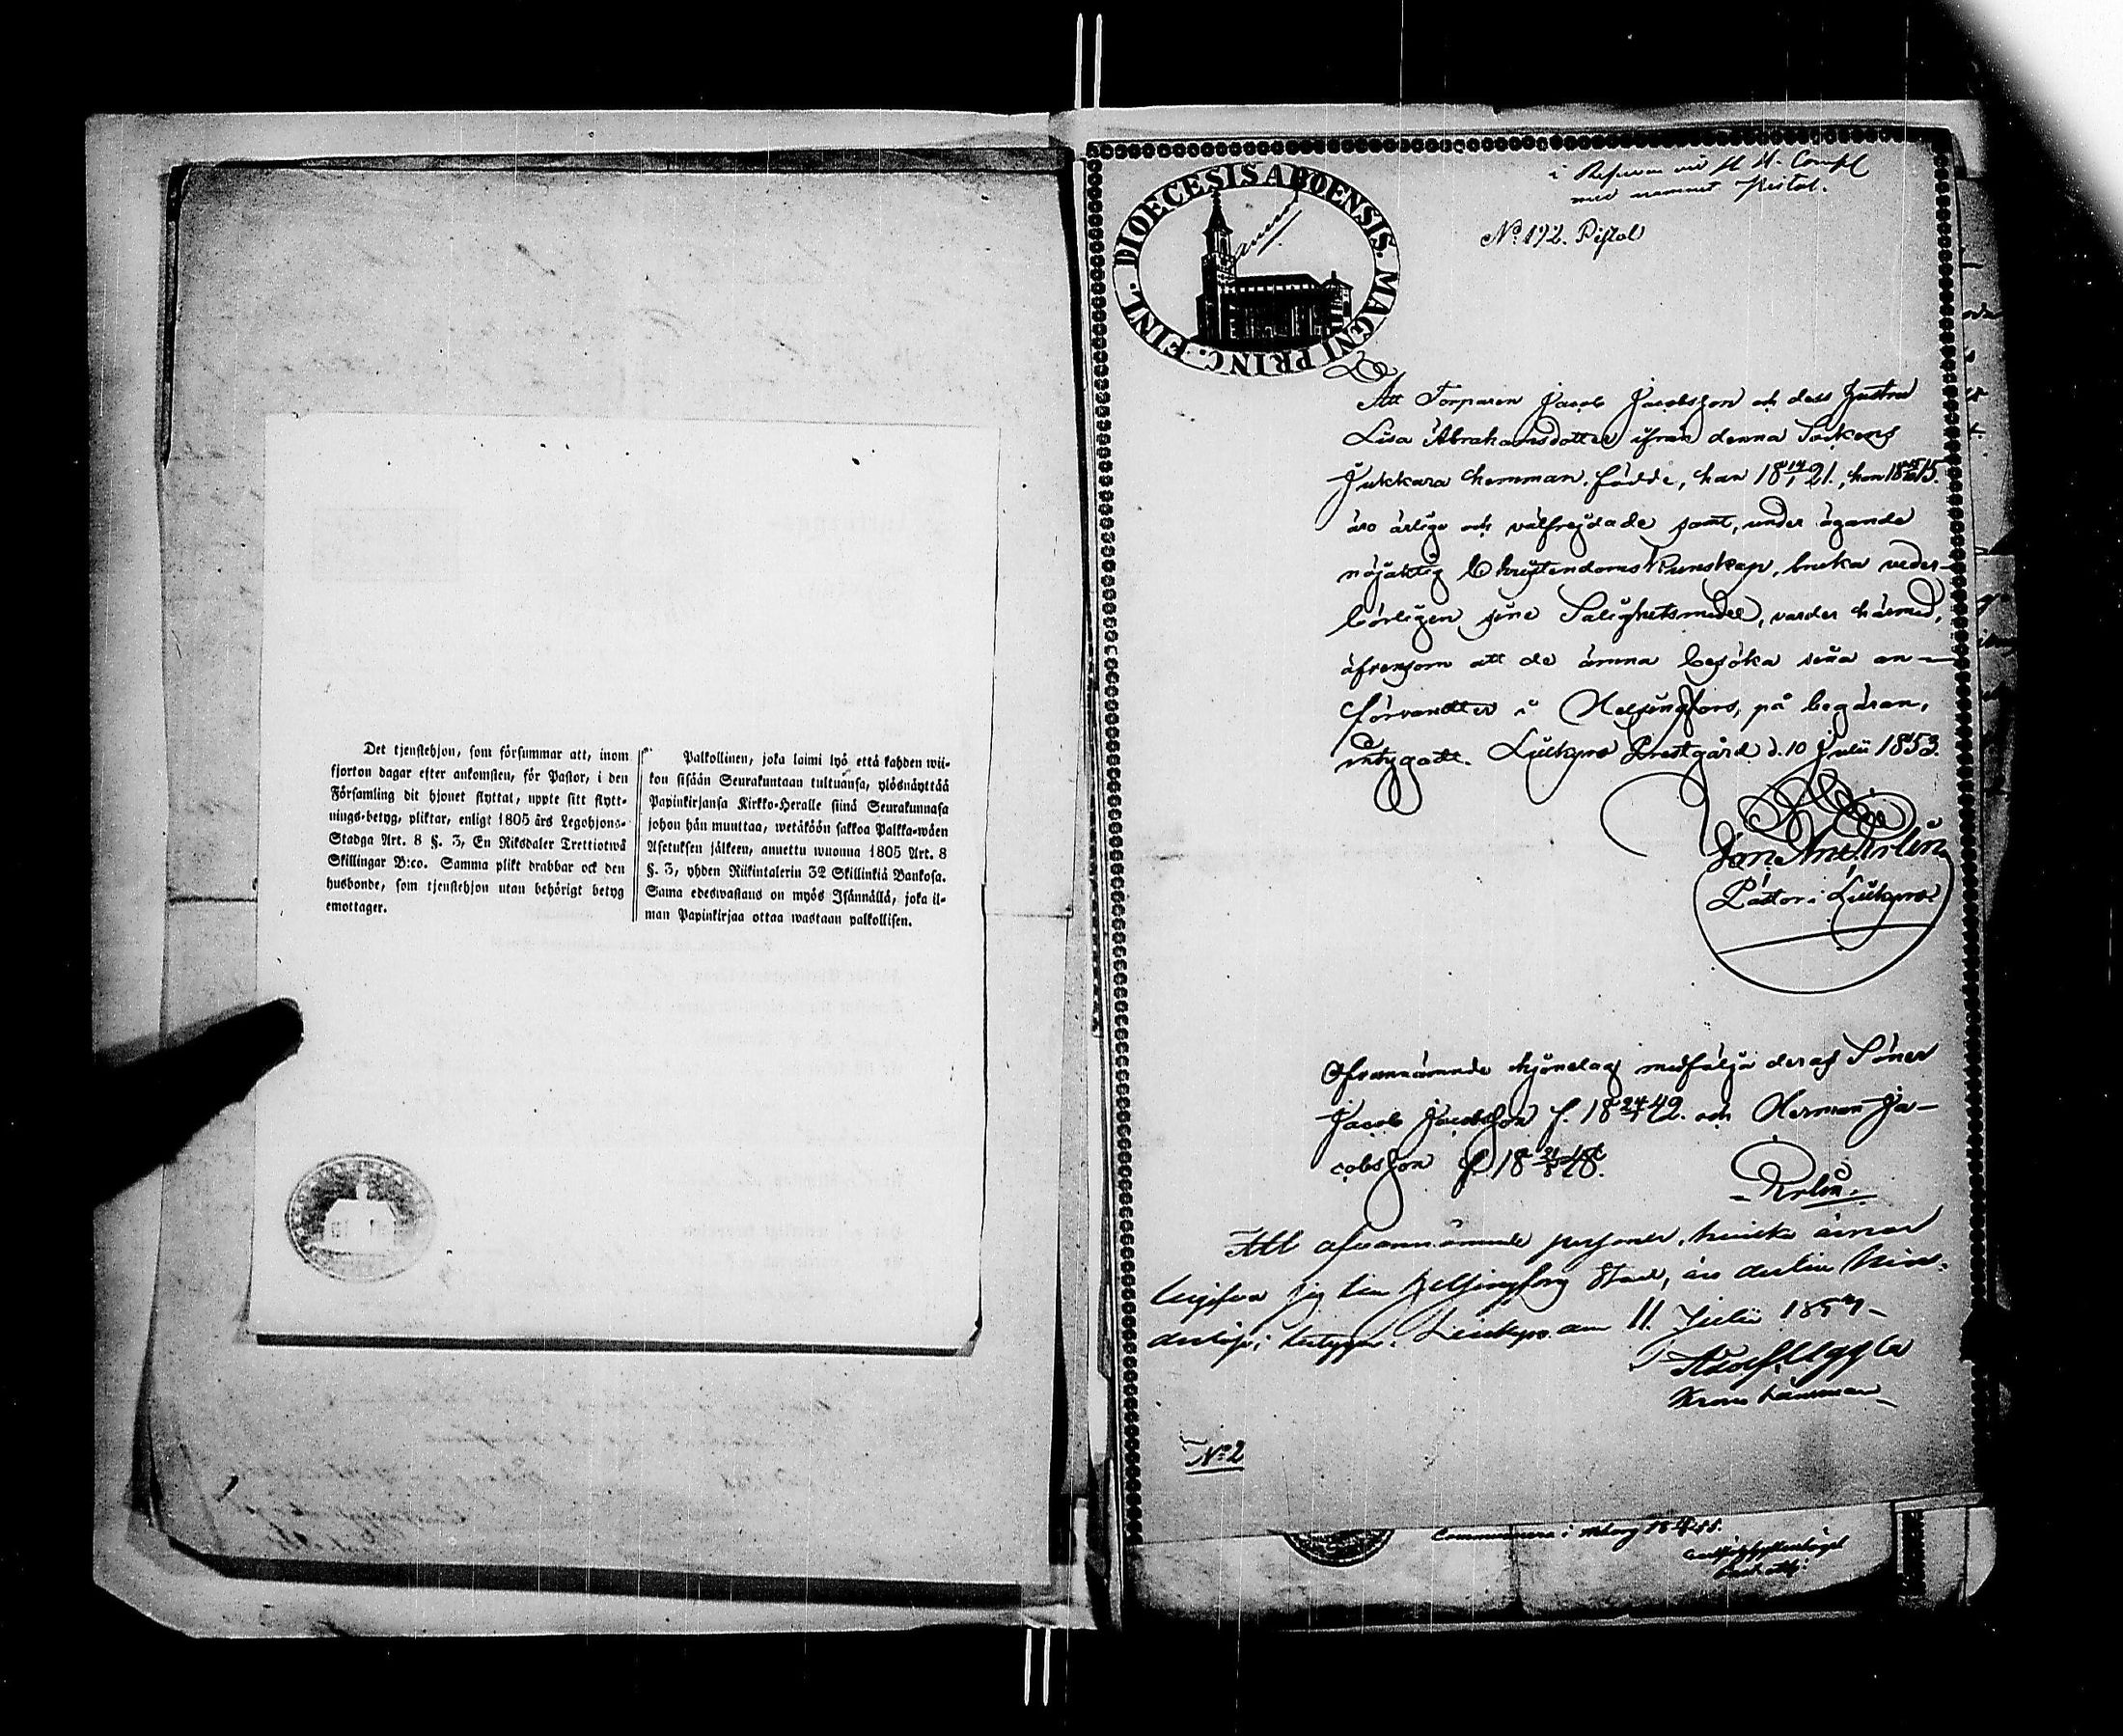 Det tjenstehjon, som försummar att, inom
fjorton dagar efter ankomsten, för Pastor, i den
Församling dit hjonet flyttat, uppte sitt flytt-
nings-betyg, pliktar, enligt 1805 års Legohjons-
Stadga Art. 8 §. 3, En Riksdaler Trettiotwå
Skillingar B:co. Samma plikt drabbar ock den
husbonde, som tjenstehjon utan behörigt betyg
emottager.
Palkollinen, joka laimi lyö että kahden wii-
kon sisään Seurakuntaan tultuansa, ylösnäyttää
Papinkirjansa Kirkko-Heralle siinä Seurakunnasa
johon hän muuttaa, wetäköön sakkoa Palkka-wäen
Asetuksen jälkeen, annettu wuonna 1805 Art. 8
§. 3, yhden Riikintalerin 32 Skillinkiä Bankosa.
Sama edeswastaus on myös Isännällä, joka il-
man Papinkirjaa ottaa wastaan palkollisen.
DIOECESIS ABOENSIS. MAGNI PRINC. FINL.
med namnet Pistol.
No. 192. Pistol
Att Torparen Jacob Jacobsson och dess Hustru
Lisa Abrahamsdotter ifrån denna Sockens
Jukkara hemman, födde, han 18 21., hon 18 15.
äro ärlige och välfrejdade samt, under ägande
nöjaktig Christendoms Kunskap, bruka veder-
börligen sine Salighetsmedel, varder härmed,
äfvensom att de ämna besöka sina an-
förvandter i Helsingfors, på begäran,
intygadt. Luckyro Prestgård d. 10 Julii 1853.
Pastor i Luckyro
Ofvannämnde hjonelag medfölja deras Söner
Jacob Jacobsson f. 18 24/1 42. och Herman Ja-
cobsson f. 18 48.
Att ofvannämnde personer, hvilka ämnar
begifva sig till Helsingfors Stad,
11 Julii
Adolf Uggla
Krono Länsman
No 2